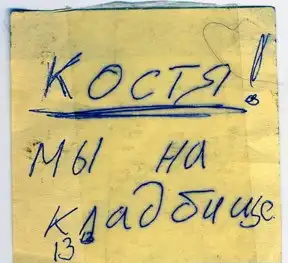 Костя!
мы на
кладбище
13